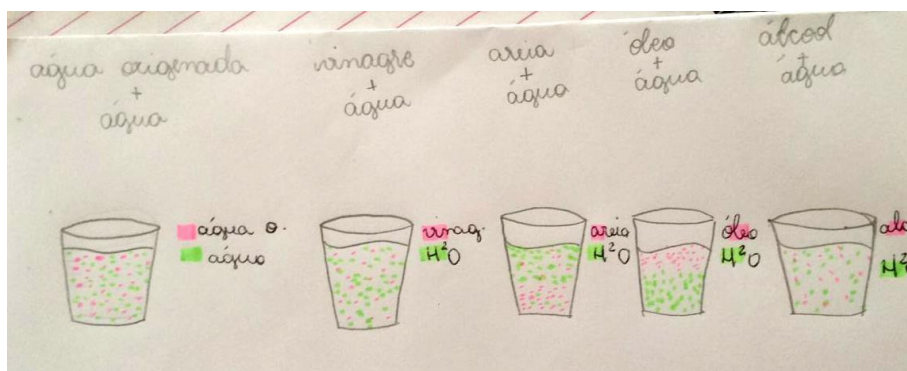 água oxigenada
+
água
vinagre
+
água
areia
+
água
óleo
+
água
álcool
+
água
água o.
água
vinag.
H²O
areia
H²O
óleo
H²O
alc
H²